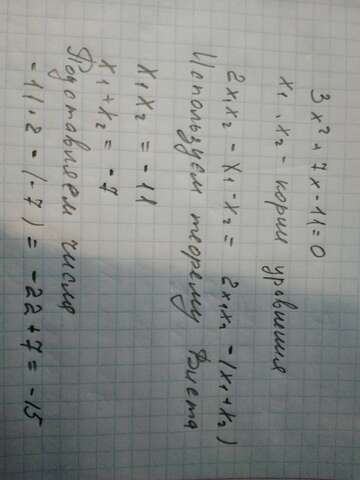 3x² + 7x - 11 = 0
x₁, x₂ - корни уравнения
2x₁x₂ - x₁ - x₂ = 2x₁x₂ - (x₁ + x₂)
Используем теорему Виета
x₁x₂ = -11
x₁ + x₂ = -7
Подставляем числа
-11·2 - (-7) = -22 + 7 = -15